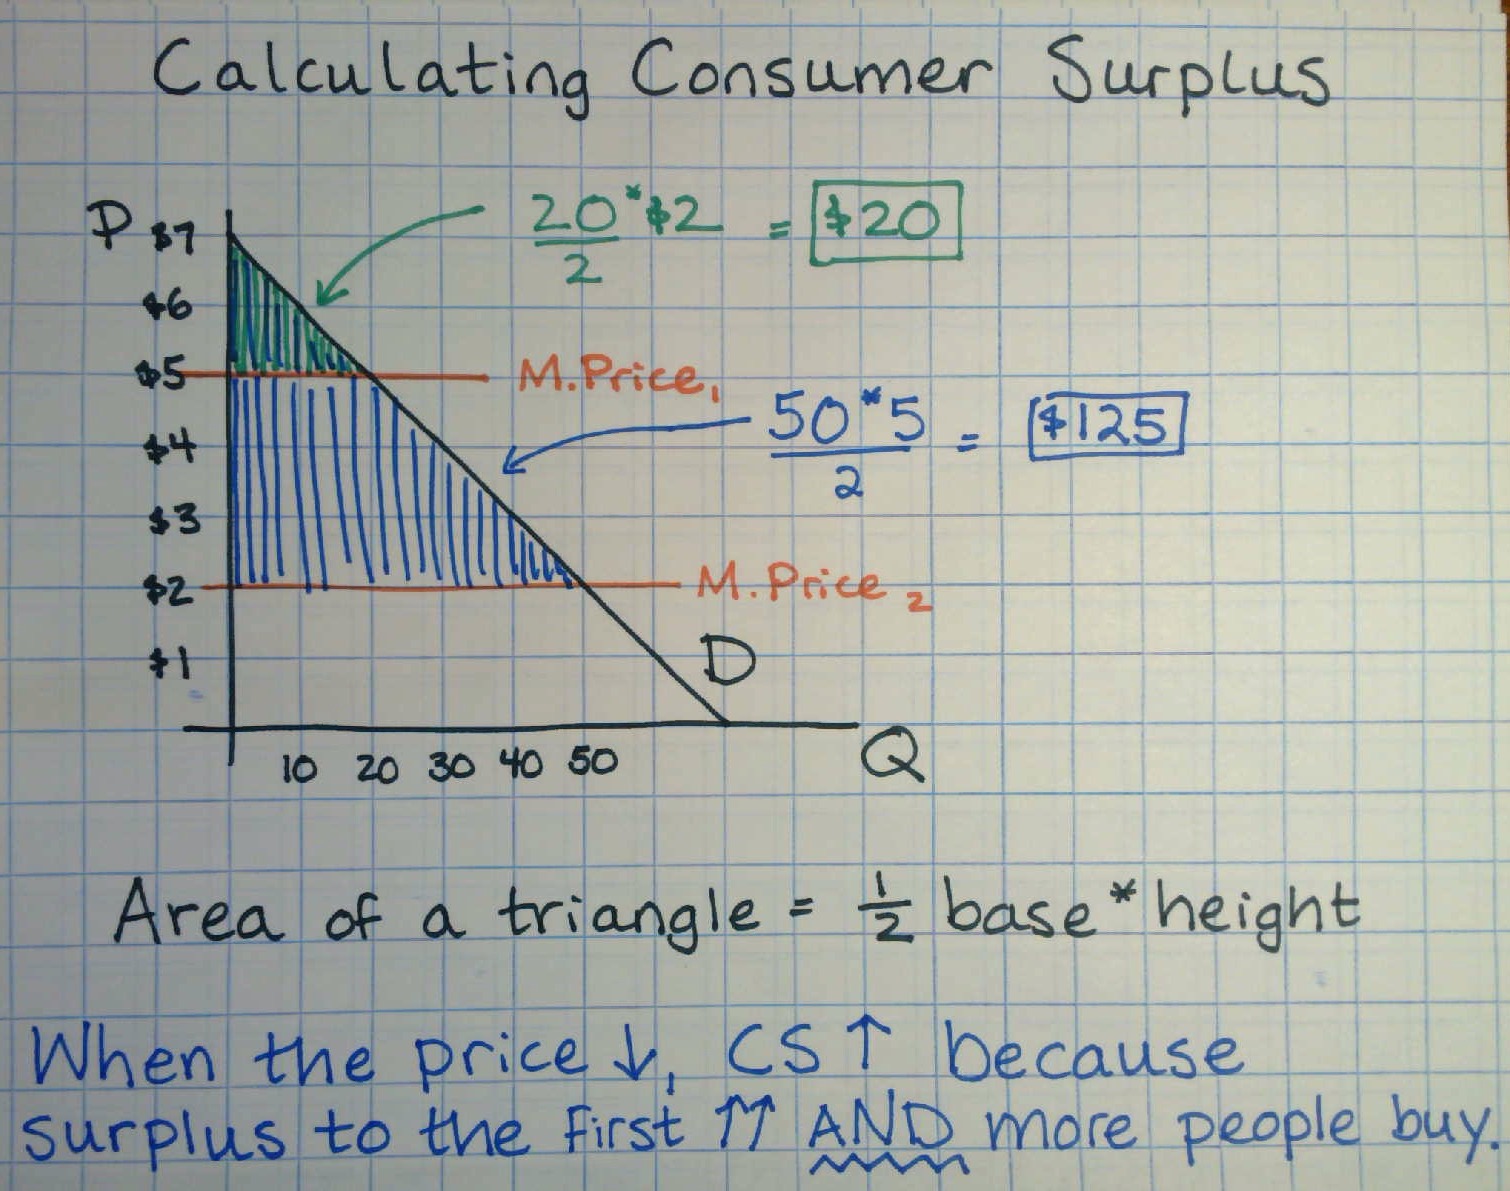 Calculating Consumer Surplus
P $7
20*$2
2
= $20
$6
$5
M.Price1
50*5
2
= $125
$4
$3
$2
M.Price 2
$1
D
10 20 30 40 50
Q
Area of a triangle = 1/2 base * height
When the price ↓, CS ↑ because
surplus to the first ↑↑ AND more people buy.